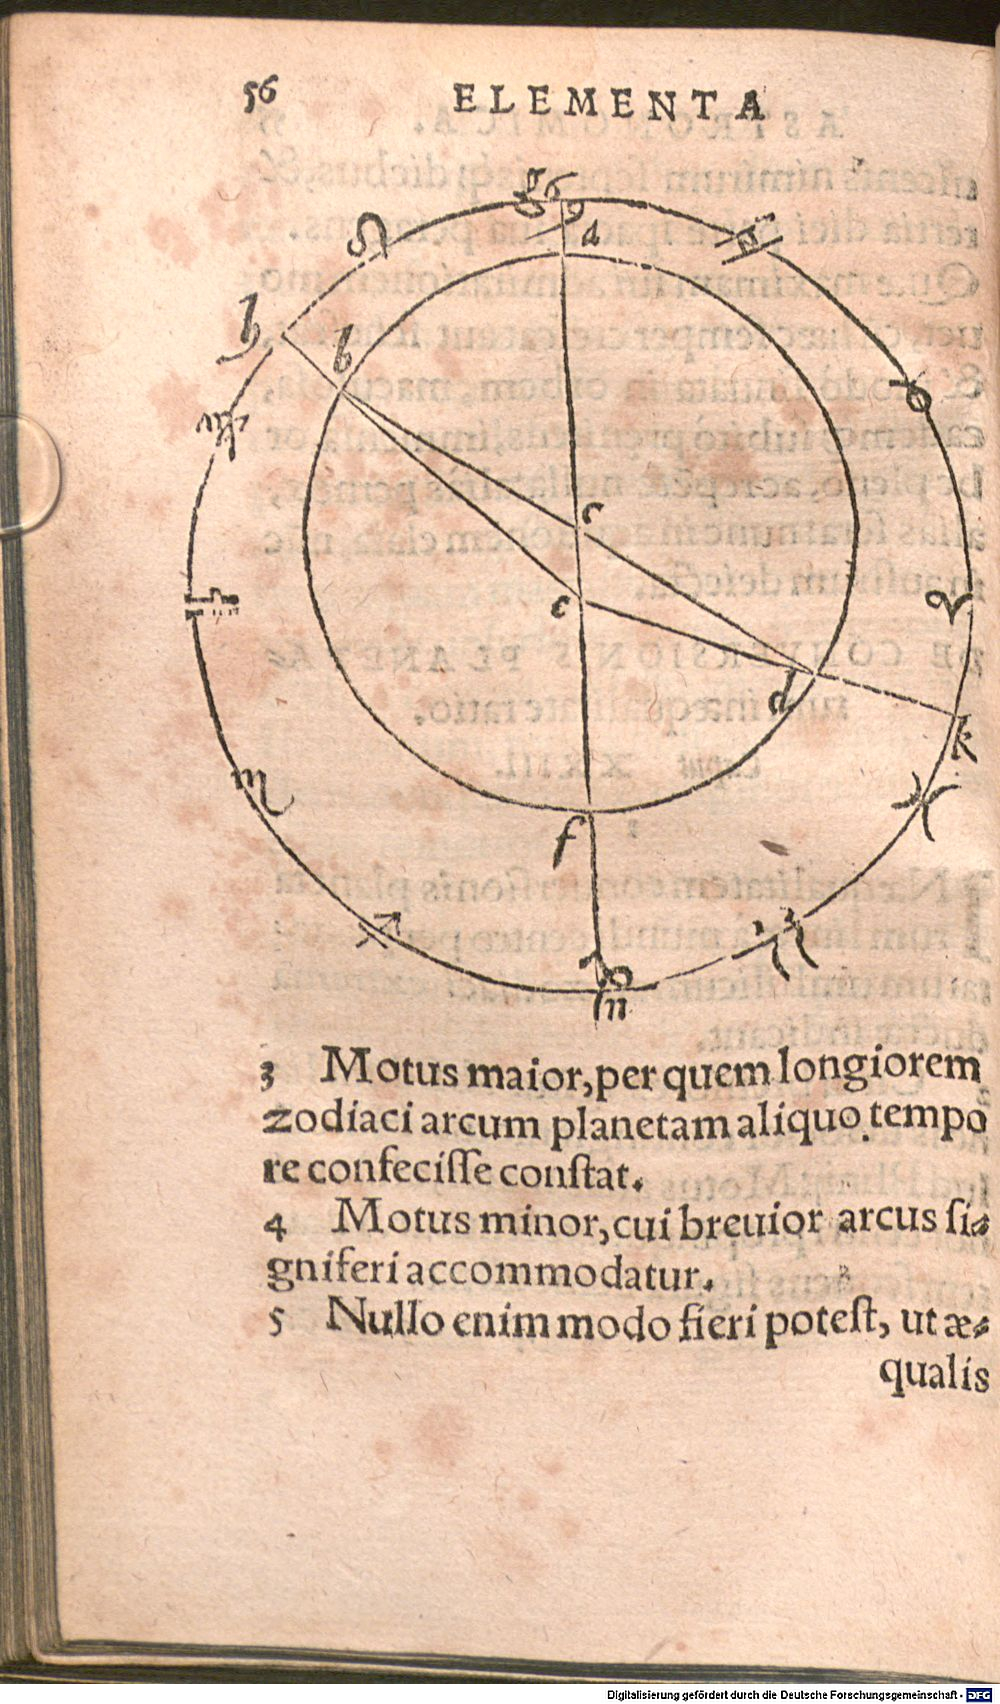 56 ELEMENTA
g ♋
a
♌ ♊
h
b
♉
♍
c
e
♎ ♈
d
k
♏ ♓
f
♐ ♒
♑
n
3 Motus maior, per quem longiorem
zodiaci arcum planetam aliquo tempo
re confecisse constat.
4 Motus minor, cui breuior arcus si-
gniferi accommodatur.
5 Nullo enim modo fieri potest, ut æ-
qualis
Digitalisierung gefördert durch die Deutsche Forschungsgemeinschaft - DFG